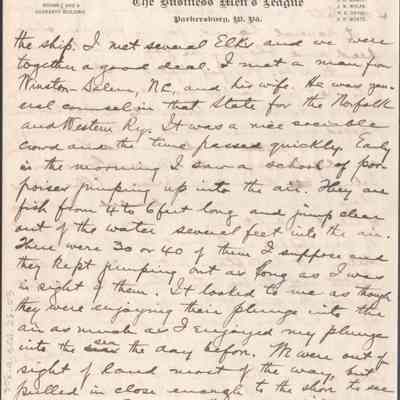 ROOMS 5 AND 6
CITIZENS BUILDING
The Business Men's League
Parkersburg, W. Va.
the ship. I met several Elks and we were
together a good deal. I met a man from
Winston-Salem, N.C., and his wife. He was gen-
eral counsel in that State for the Norfolk
and Western Ry. It was a nice sociable
crowd and the time passed quickly. Early
in the morning I saw a school of por-
poises jumping up into the air. They are
fish from 4 to 6 feet long and jump clear
out of the water several feet into the air.
There were 30 or 40 of them I suppose and
they kept jumping out as long as I was
in sight of them. It looked to me as though
they were enjoying their plunge into the
air as much as I enjoyed my plunge
into the sea the day before. We were out of
sight of land most of the way, but
pulled in close enough to the shore to see